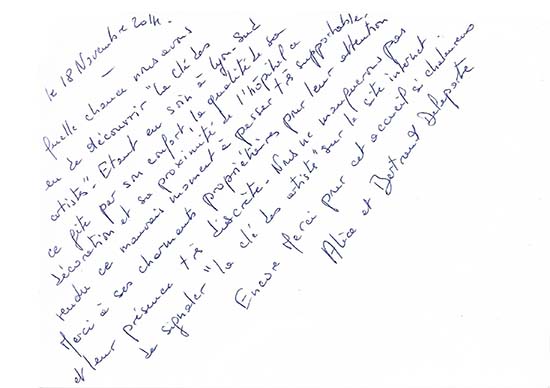 le 18 Novembre 2014.
Quelle chance nous avons
eu de découvrir "la clé des
artistes". Etant en soin à Lyon-Sud
ce gîte par son confort, la qualité de sa
décoration et sa proximité de l'hôpital a
rendu ce mauvais moment à passer très supportable.
Merci à ses charmants propriétaires pour leur attention
et leur présence très discrète. Nous ne manquerons pas
de signaler "la clé des artistes" sur le site internet.
Encore Merci pour cet accueil si chaleureux
Alice et Bertrand Delaporte